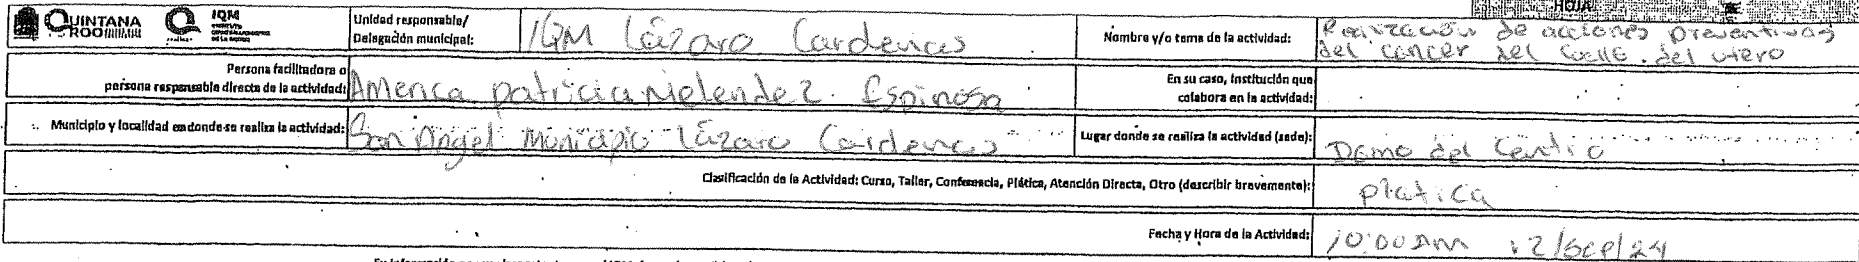 HOJA
QUINTANA ROO
IQM
Unidad responsable/ Delegación municipal: IQM Lázaro Cardenas
Nombre y/o tema de la actividad: Realización de acciones preventivas del cancer del cuello del utero
Persona facilitadora o persona responsable directa de la actividad: America patricia Melendez Espinosa
En su caso, institución que colabora en la actividad:
Municipio y localidad en donde se realiza la actividad: San Angel Municipio Lázaro Cardenas
Lugar donde se realiza la actividad (sede): Domo del Centro
Clasificación de la Actividad: Curso, Taller, Conferencia, Plática, Atención Directa, Otro (describir brevemente): platica
Fecha y Hora de la Actividad: 10:00 AM 12/sep/24